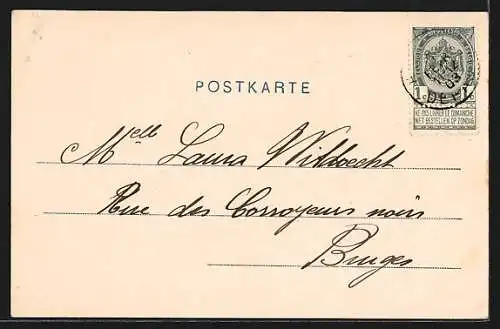 POSTKARTE
1 c 1 c
NE PAS LIVRER LE DIMANCHE
NIET BESTELLEN OP ZONDAG
Melle Laura Wittvecht
Rue des Corroyeurs noirs
Bruges